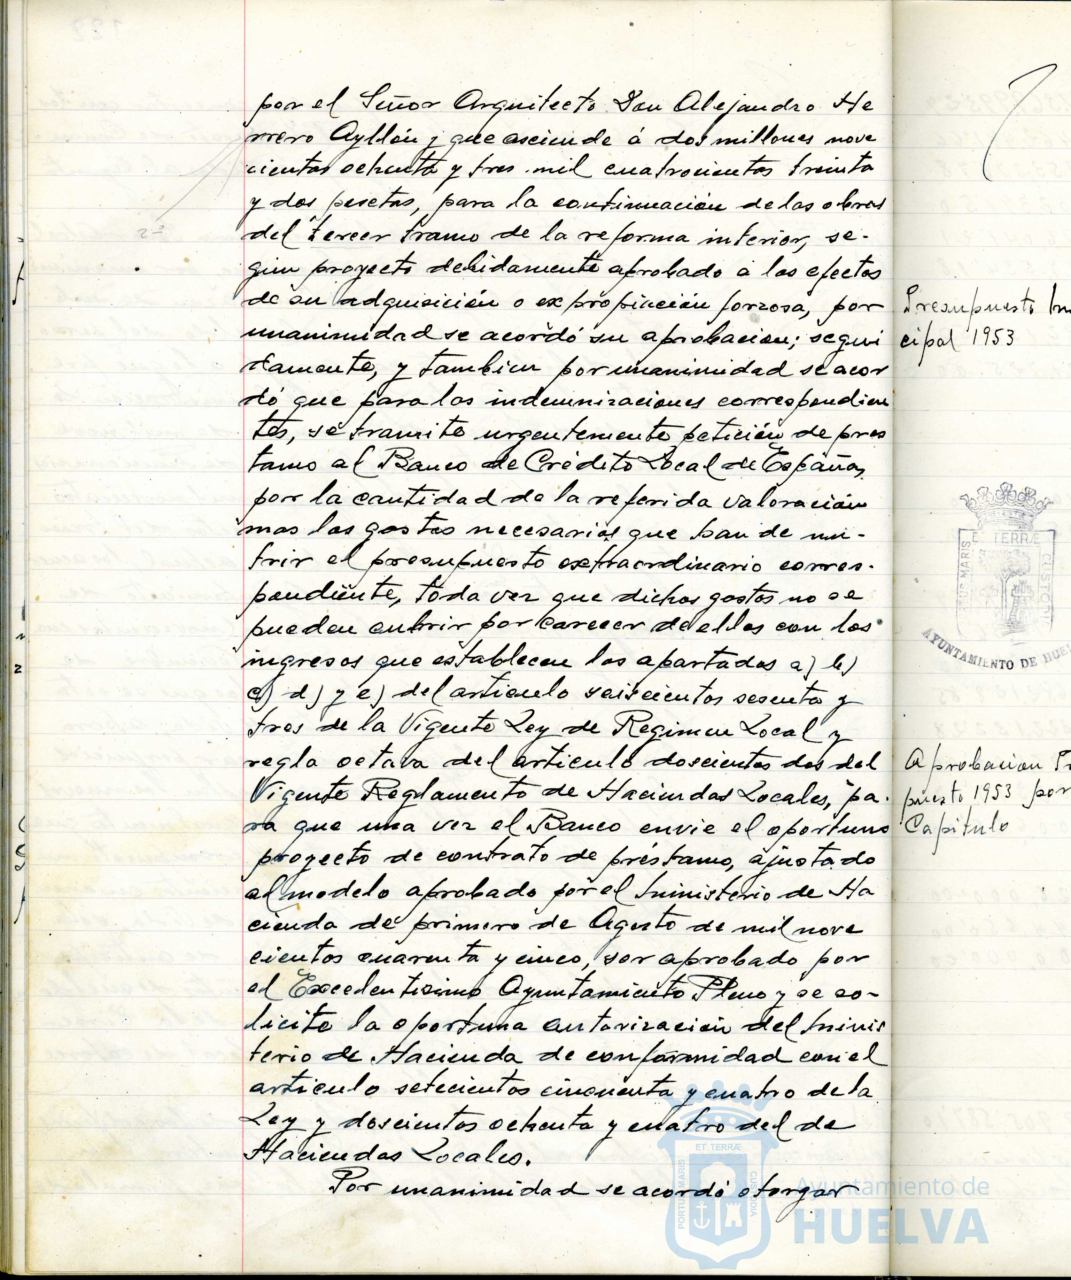 por el Señor Arquitecto Don Alejandro He
rrero Ayllón y que asciende á dos millones nove
cientas ochenta y tres mil cuatrocientas treinta
y dos pesetas, para la continuación de las obras
del tercer tramo de la reforma interior, se-
gún proyecto debidamente aprobado a los efectos
de su adquisición o expropiación forzosa, por
unanimidad se acordó su aprobación; segui
damente, y tambien por unanimidad se acor
dó que para las indemnizaciones correspondien
tes, se tramite urgentemente petición de pres
tamo al Banco de Crédito Local de España,
por la cantidad de la referida valoración
mas los gastos necesarios que han de nu-
trir el presupuesto extraordinario corres-
pondiente, toda vez que dichos gastos no se
pueden cubrir por carecer de ellos con los
ingresos que establecen los apartados a) b)
c) d) y e) del articulo seiscientos sesenta y
tres de la Vigente Ley de Regimen Local y
regla octava del articulo doscientos dos del
Vigente Reglamento de Haciendas Locales, pa-
ra que una vez el Banco envie el oportuno
proyecto de contrato de préstamo, ajustado
al modelo aprobado por el Ministerio de Ha
cienda de primero de Agosto de mil nove
cientos cuarenta y cinco, ser aprobado por
el Excelentisimo Ayuntamiento Pleno y se so-
licite la oportuna autorización del Minis
terio de Hacienda de conformidad con el
articulo setecientos cincuenta y cuatro de la
Ley y doscientos ochenta y cuatro del de
Haciendas Locales.
Por unanimidad se acordó otorgar
Presupuesto
cipal 1953
PORTUS MARIS ET TERRÆ CUSTODIA
AYUNTAMIENTO DE HUEL
Aprobacion
puesto 1953 por
Capitulo
PORTUS MARIS ET TERRÆ CUSTODIA
Ayuntamiento de
HUELVA